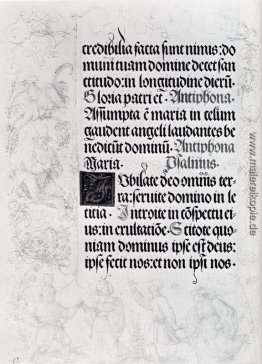 credibilia facta sunt nimis: do
mum tuam domine decet san
ctitudo: in longitudine dierū.
Gloria patri et̄. Antiphona.
Assumpta ē maria in celum
gaudent angeli laudantes be
nedicūt dominū. Antiphona
Maria. Psalmus.
Iubilate deo omnis ter-
ra: servite domino in le
titia. Introite in cōspectu ei-
us: in exultatiōe. Scitote quo-
niam dominus ipse est deus:
ipse fecit nos: et non ipsi nos.
www.malereikopie.de